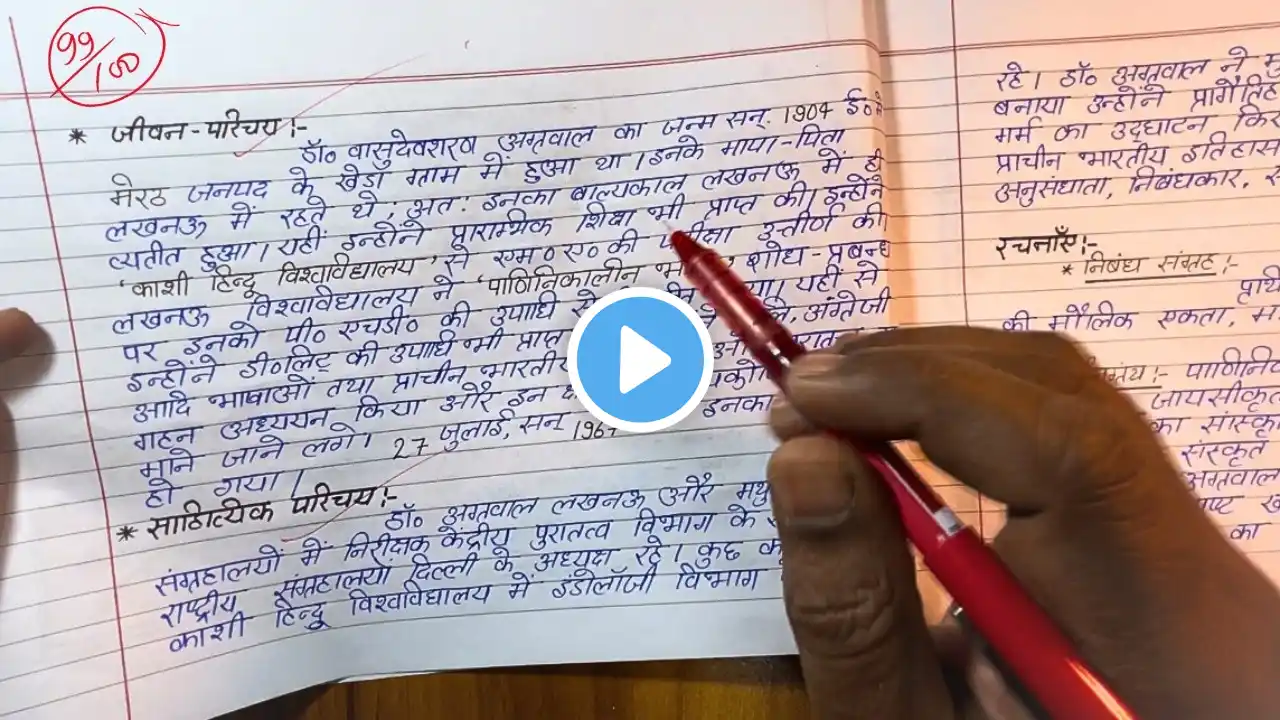 99/100
* जीवन-परिचय :-
डॉ० वासुदेवशरण अग्रवाल का जन्म सन् 1904 ई० में
मेरठ जनपद के खेड़ा ग्राम में हुआ था। इनके माता-पिता
लखनऊ में रहते थे; अत: इनका बाल्यकाल लखनऊ में ही
व्यतीत हुआ। यहीं इन्होंने प्रारम्भिक शिक्षा भी प्राप्त की। इन्होंने
'काशी हिन्दू विश्वविद्यालय' से एम०ए० की परीक्षा उत्तीर्ण की
लखनऊ विश्वविद्यालय ने 'पाणिनिकालीन शोध-प्रबन्ध
पर इनको पी० एचडी० की उपाधि यहीं से
इन्होंने डी०लिट् की उपाधि भी प्राप्त अंग्रेजी
आदि भाषाओं तथा प्राचीन भारतीय
गहन अध्ययन किया और इन
माने जाने लगे। 27 जुलाई, सन् इनका
हो गया।
* साहित्यिक परिचय :-
डॉ० अग्रवाल लखनऊ और
संग्रहालयों में निरीक्षक केंद्रीय पुरातत्व विभाग के
राष्ट्रीय संग्रहालयों दिल्ली के अध्यक्ष रहे। कुछ
काशी हिन्दू विश्वविद्यालय में इंडोलॉजी विभाग
रहे। डॉ० अग्रवाल ने
बनाया उन्होंने
मर्म का उद्घाटन
प्राचीन भारतीय इतिहास
अनुसंधाता, निबंधकार,
रचनाएँ :-
* निबंध संग्रह :-
की मौलिक एकता,
जायसीकृत
का
संस्कृत
अग्रवाल
का